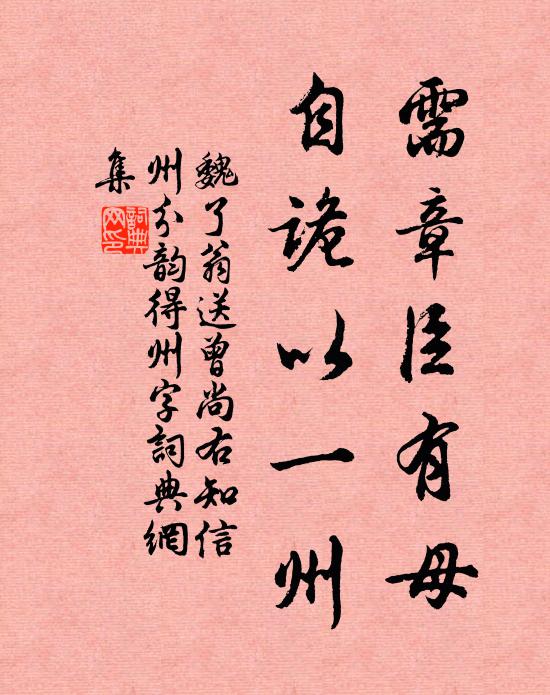 需章臣有母
自诡以一州
魏了翁送曾尚右知信
州分韵得州字詞典網
集
詞典
网印